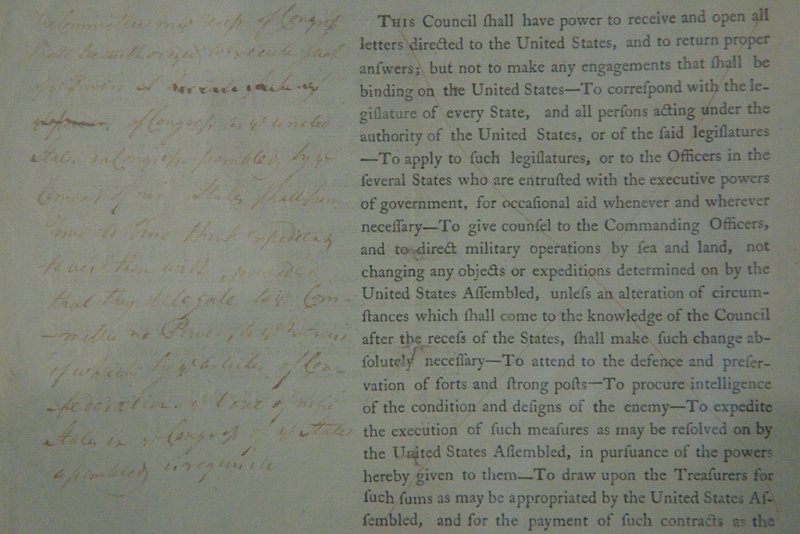 The Committee in ye recess of Congress
shall be authorized to execute such
of ye Powers
of Congress as ye united
States in Congress assembled by ye
Consent of nine States shall from
time to time think expedient
to vest them with, provided
that they delegate to ye Com-
-mittee no Power, to ye exercise
of which by ye articles of Con-
-federation ye Voice of nine
States in ye Congress of ye States
assembled is requisite
THIS Council ſhall have power to receive and open all
letters directed to the United States, and to return proper
anſwers; but not to make any engagements that ſhall be
binding on the United States—To correſpond with the le-
giſlature of every State, and all perſons acting under the
authority of the United States, or of the ſaid legiſlatures
—To apply to ſuch legiſlatures, or to the Officers in the
ſeveral States who are entruſted with the executive powers
of government, for occaſional aid whenever and wherever
neceſſary—To give counſel to the Commanding Officers,
and to direct military operations by ſea and land, not
changing any objects or expeditions determined on by the
United States Aſſembled, unleſs an alteration of circum-
ſtances which ſhall come to the knowledge of the Council
after the receſs of the States, ſhall make ſuch change ab-
ſolutely neceſſary—To attend to the defence and preſer-
vation of forts and ſtrong poſts—To procure intelligence
of the condition and deſigns of the enemy—To expedite
the execution of ſuch meaſures as may be reſolved on by
the United States Aſſembled, in purſuance of the powers
hereby given to them—To draw upon the Treaſurers for
ſuch ſums as may be appropriated by the United States Aſ-
ſembled, and for the payment of ſuch contracts as the